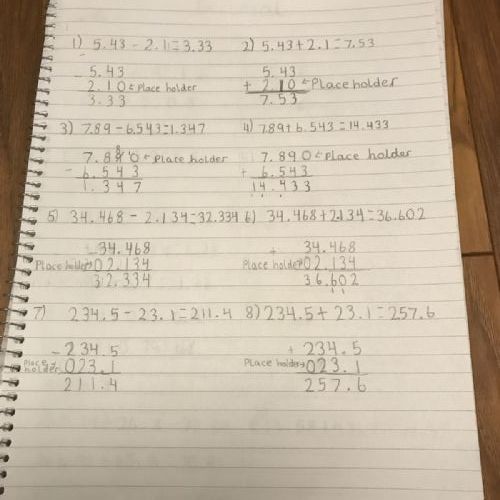 1) 5.43 - 2.1 = 3.33 2) 5.43 + 2.1 = 7.53
- 5.43 5.43
2.10 ← Place holder + 2.10 ← Place holder
3.33 7.53
3) 7.89 - 6.543 = 1.347 4) 7.89 + 6.543 = 14.433
8
7.890 ← Place holder 7.890 ← Place holder
- 6.543 + 6.543
1.347 14.433
5) 34.468 - 2.134 = 32.334 6) 34.468 + 2.134 = 36.602
34.468 + 34.468
Place holder → 02.134 Place holder → 02.134
32.334 36.602
7) 234.5 - 23.1 = 211.4 8) 234.5 + 23.1 = 257.6
- 234.5 + 234.5
Place holder → 023.1 Place holder → 023.1
211.4 257.6